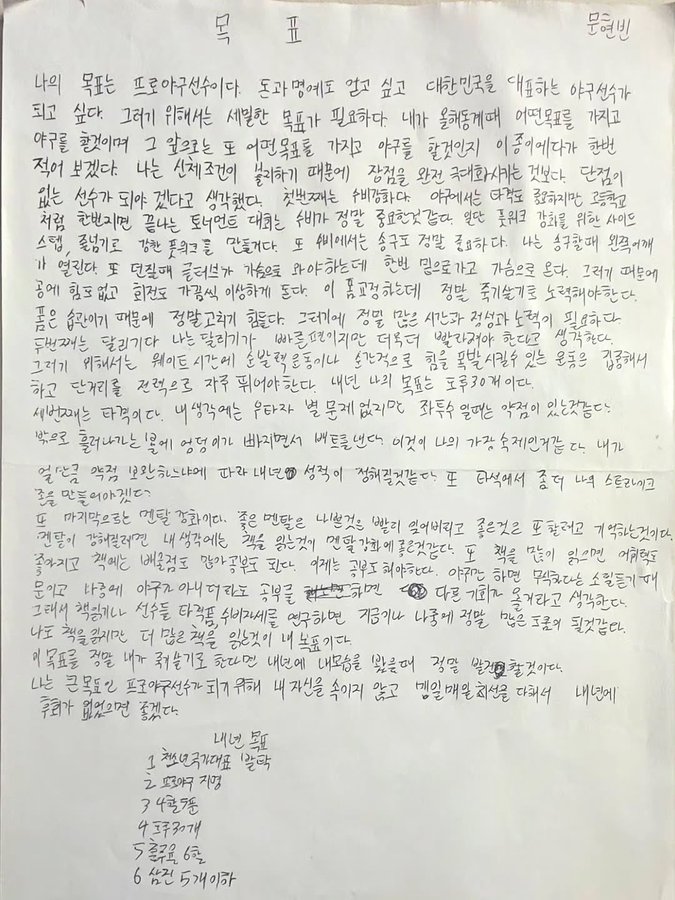 목 표
문현빈
나의 목표는 프로야구선수이다. 돈과 명예도 얻고 싶고 대한민국을 대표하는 야구선수가
되고 싶다. 그러기 위해서는 세밀한 목표가 필요하다. 내가 올해동계때 어떤목표를 가지고
야구를 할것이며 그 앞으로는 또 어떤목표를 가지고 야구를 할것인지 이종이에다가 한번
적어 보겠다. 나는 신체조건이 불리하기 때문에 장점을 완전 극대화시키는것보다. 단점이
없는 선수가 되야 겠다고 생각했다. 첫번째는 수비강화다. 야구에서는 타격도 중요하지만 고등학교
처럼 한번지면 끝나는 토너먼트 대회는 수비가 정말 중요한것같다. 일단 풋워크 강화를 위한 사이드
스탭, 줄넘기로 강한 풋워크를 만들거다. 또 수비에서는 송구도 정말 중요하다. 나는 송구할때 왼쪽어깨
가 열린다. 또 던질때 글러브가 가슴으로 와야하는데 한번 밑으로가고 가슴으로 온다. 그러기 때문에
공에 힘도없고 회전도 가끔씩 이상하게 돈다. 이 폼교정하는데 정말 죽기살기로 노력해야한다.
폼은 습관이기 때문에 정말고치기 힘들다. 그러기에 정말 많은 시간과 정성과 노력이 필요하다.
두번째는 달리기다 나는달리기가 빠른편이지만 더욱더 빨라져야 한다고 생각한다.
그러기 위해서는 웨이트시간에 순발력운동이나 순간적으로 힘을 폭발시킬수 있는 운동은 집중해서
하고 단거리를 전력으로 자주 뛰어야한다. 내년 나의 목표는 도루30개이다.
세번째는 타격이다. 내생각에는 우타자 별 문제없지만 좌투수일때는 약점이 있는것같다.
밖으로 흘러나가는 볼에 엉덩이가 빠지면서 배트를낸다. 이것이 나의 가장숙제인거같다. 내가
얼만큼 약점 보완하느냐에 따라 내년 성적이 정해질것같다. 또 타석에서 좀더 나의 스트라이크
존을 만들어야겠다.
또 마지막으로는 멘탈강화이다. 좋은 멘탈은 나쁜것은 빨리 잊어버리고 좋은것은 또할려고 기억하는것이다.
멘탈이 강해질려면 내 생각에는 책을 읽는것이 멘탈강화에좋은것같다. 또 책을 많이 읽으면 어휘력도
좋아지고 책에는 배울점도 많아공부도 된다. 이제는 공부도해야한다. 야구만 하면 무식하다는 소릴듣기 때
문이고 나중에 야구가 아니더라도 공부를 하면 다른 기회가 올거라고 생각한다.
그래서 책읽기나 선수들 타격폼,수비자세를 연구하면 지금이나 나중에 정말 많은 도움이 될것같다.
나도 책을읽지만 더 많은 책을 읽는것이 내 목표이다.
이목표를 정말 내가 죽기살기로 한다면 내년에 내모습을 봤을때 정말 발전할것이다.
나는 큰목표인 프로야구선수가 되기위해 내자신을 속이지 않고 매일매일 최선을 다해서 내년에
후회가 없었으면 좋겠다.
내년 목표
1 청소년국가대표 발탁
2 프로야구 지명
3 4할5푼
4 도루30개
5 출루율 6할
6 삼진 5개이하